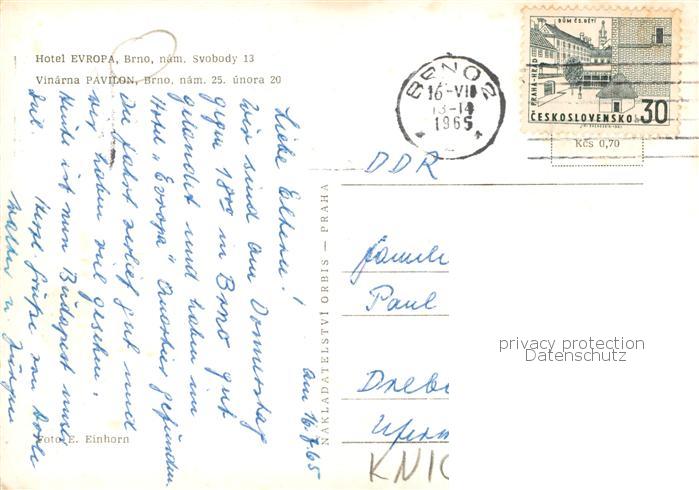 Hotel EVROPA, Brno, nám. Svobody 13
Vinárna PAVILON, Brno, nám. 25. února 20
Am 16.7.65
Liebe Eltern!
Wir sind am Donnerstag
gegen 18⁰⁰ in Brno gut
gelandet und haben im
Hotel "Evropa" Quartier gefunden.
Die Fahrt verlief gut und
wir haben viel gesehen.
Heute ist nun Budapest unser
Ziel.
Herzl. Grüße von
Walter u. Jürgen
Foto E. Einhorn
NAKLADATELSTVÍ ORBIS — PRAHA
BRNO 2
16-VII
13-14
1965
DŮM ČS. DĚTÍ
PRAHA-HRAD
ČESKOSLOVENSKO
30
Kčs 0,70
DDR
Famili
Paul
privacy protection
Datenschutz